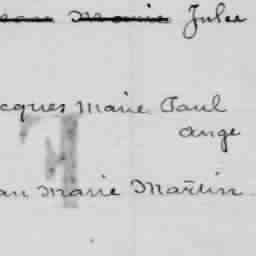 Jean Marie Julee
cques Marie Paul
Ange
an Marie Martin